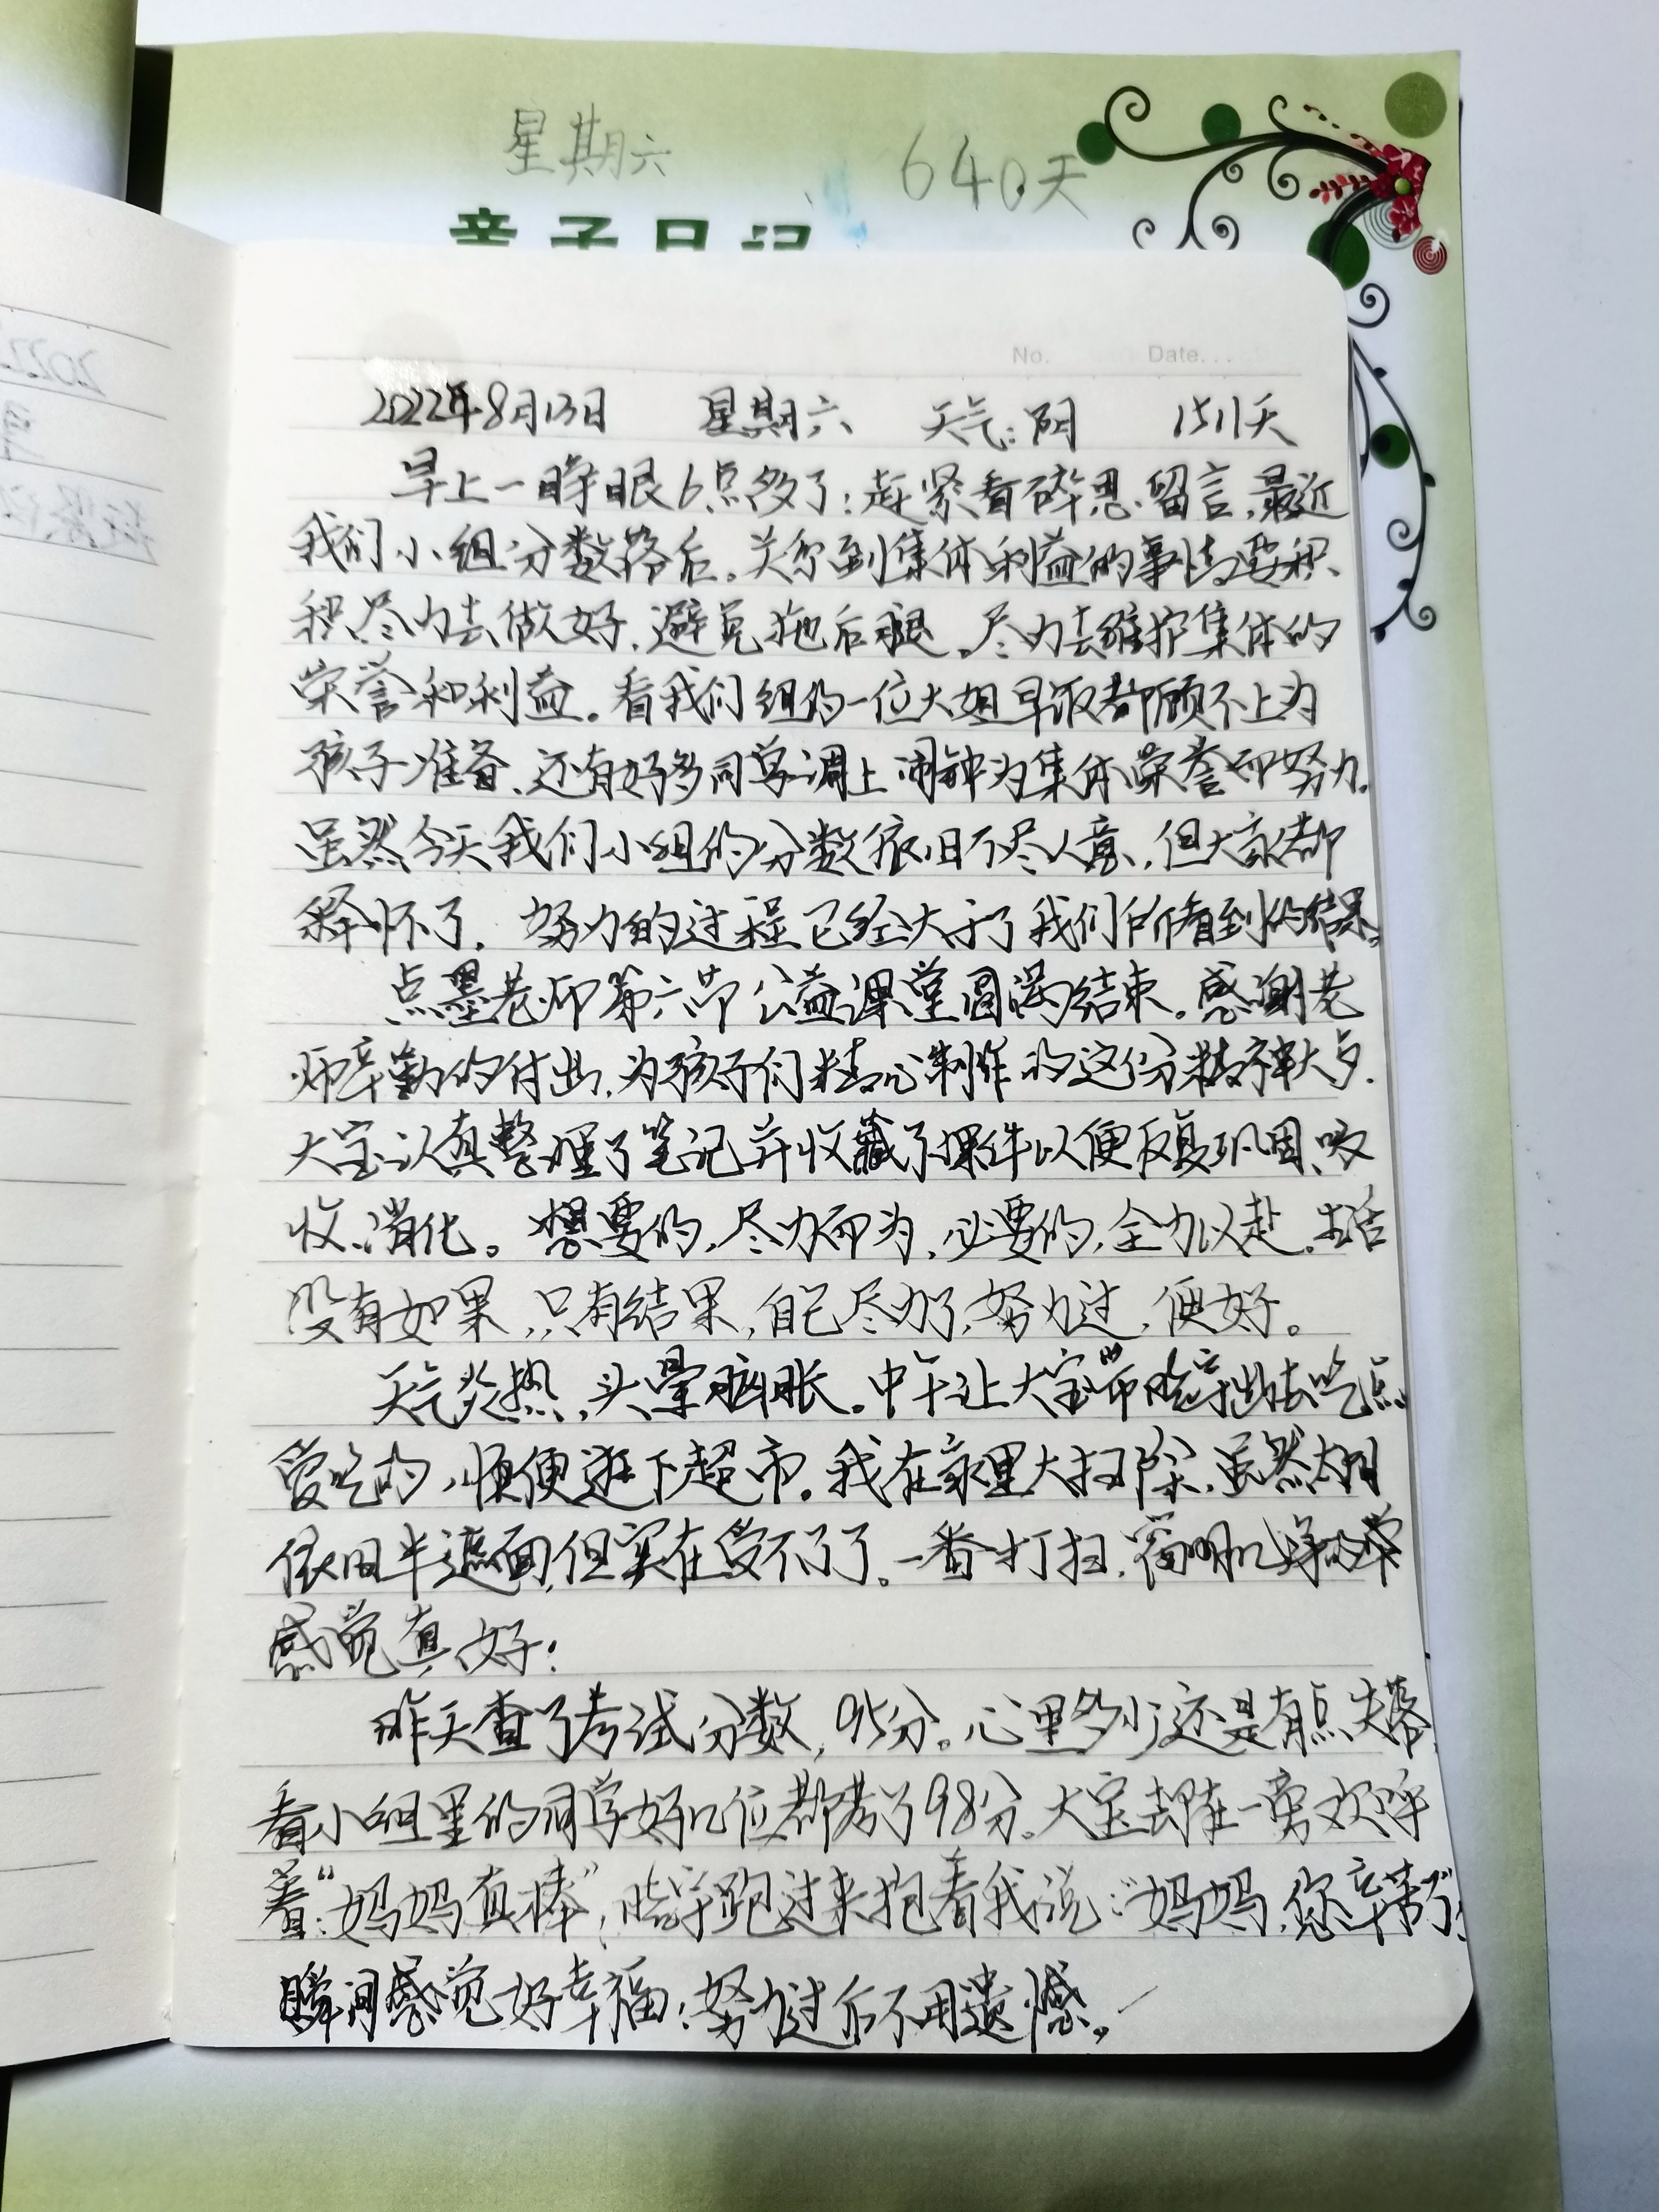 星期六 640天
亲子日记
No. Date
2022年8月13日 星期六 天气:阴 1511天
早上一睁眼6点多了;赶紧看碎思、留言,最近
我们小组分数落后。关系到集体利益的事情要积
积尽力去做好,避免拖后腿。尽力去维护集体的
荣誉和利益。看我们组的一位大姐早饭都顾不上为
孩子准备、还有好多同学调上闹钟为集体荣誉而努力。
虽然今天我们小组的分数依旧不尽人意,但大家都
释怀了,努力的过程已经大于了我们所看到的结果。
点墨老师第六节公益课堂圆满结束。感谢老
师辛勤的付出,为孩子们精心制作的这份精神大餐.
大宝认真整理了笔记并收藏了课件以便反复巩固、吸
收、消化。想要的,尽力而为,必要的,全力以赴。生活
没有如果,只有结果,自己尽力了,努力过,便好。
天气炎热,头晕脑胀。中午让大宝带皓宇出去吃点
爱吃的,顺便逛下超市。我在家里大扫除,虽然太阳
依旧半遮面,但实在受不了了。一番打扫,窗明几净的
感觉真好!
昨天查了考试分数,95分。心里多少还是有点失落,
看小组里的同学好几位都考了98分。大宝却在一旁欢呼
着:“妈妈真棒”,皓宇跑过来抱着我说:“妈妈,你辛苦了”!
瞬间感觉好幸福!努力过后不用遗憾。